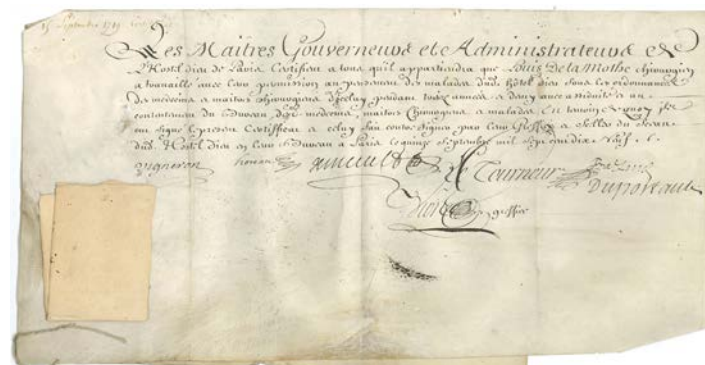 15 Septembre 1719
Les Maitres Gouverneurs et Administrateurs de
L'Hostel dieu de Paris Certifient a tous qu'il appartiendra que Louis De la Mothe chirurgien
a travaillé avec leur permission au pensement des malades dud. hôtel dieu sous les ordonnances
des medecins et maitres chirurgiens d'iceluy pendant années et avec assiduité et au
contentement du Bureau, medecins, maitres Chirurgiens et malades En temoin de quoy
ont signé le present Certifficat et celuy fait contresigner par leur Greffier et Seller du Sceau
dud. Hostel dieu en leur Bureau a Paris le quinze Septembre mil sept cent dix Neuf
Vigneron Le Tourneur
Duportault
greffier